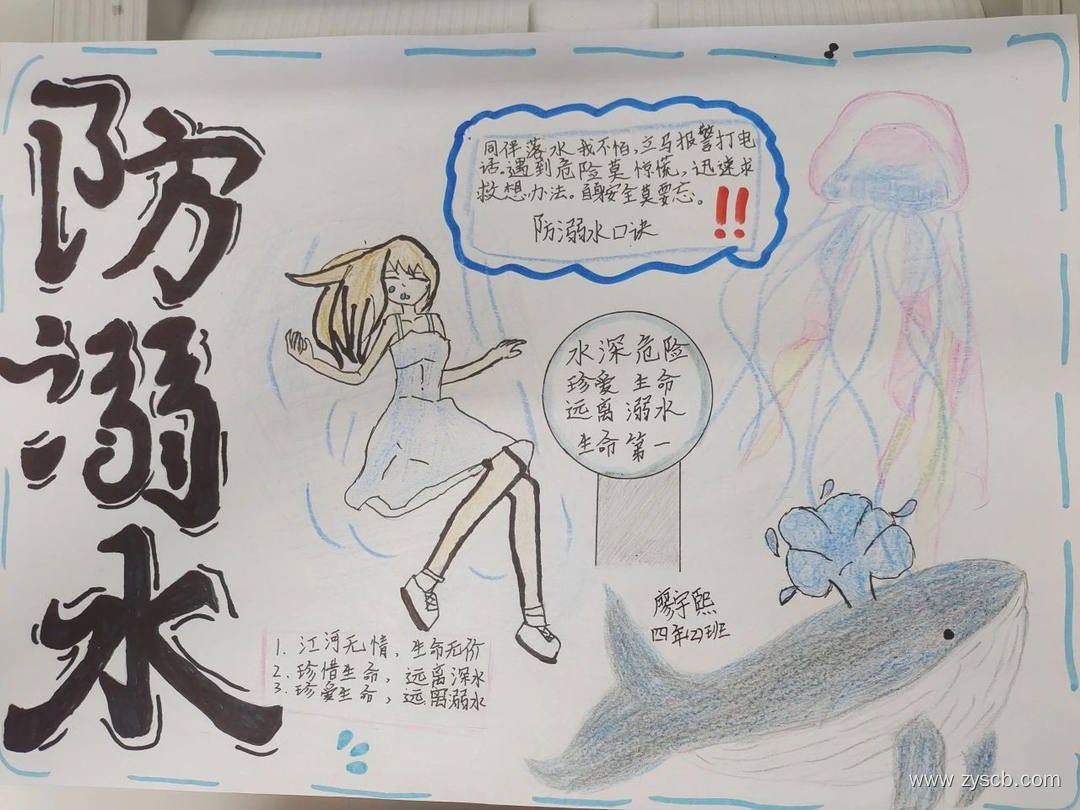 防溺水
同伴落水我不怕，立马报警打电
话。遇到危险莫惊慌，迅速求
救想办法。自身安全莫要忘。
防溺水口诀
!!
水深危险
珍爱生命
远离溺水
生命第一
廖宇熙
四年(2)班
1. 江河无情，生命无价
2. 珍惜生命，远离深水
3. 珍爱生命，远离溺水
www.zyscb.com